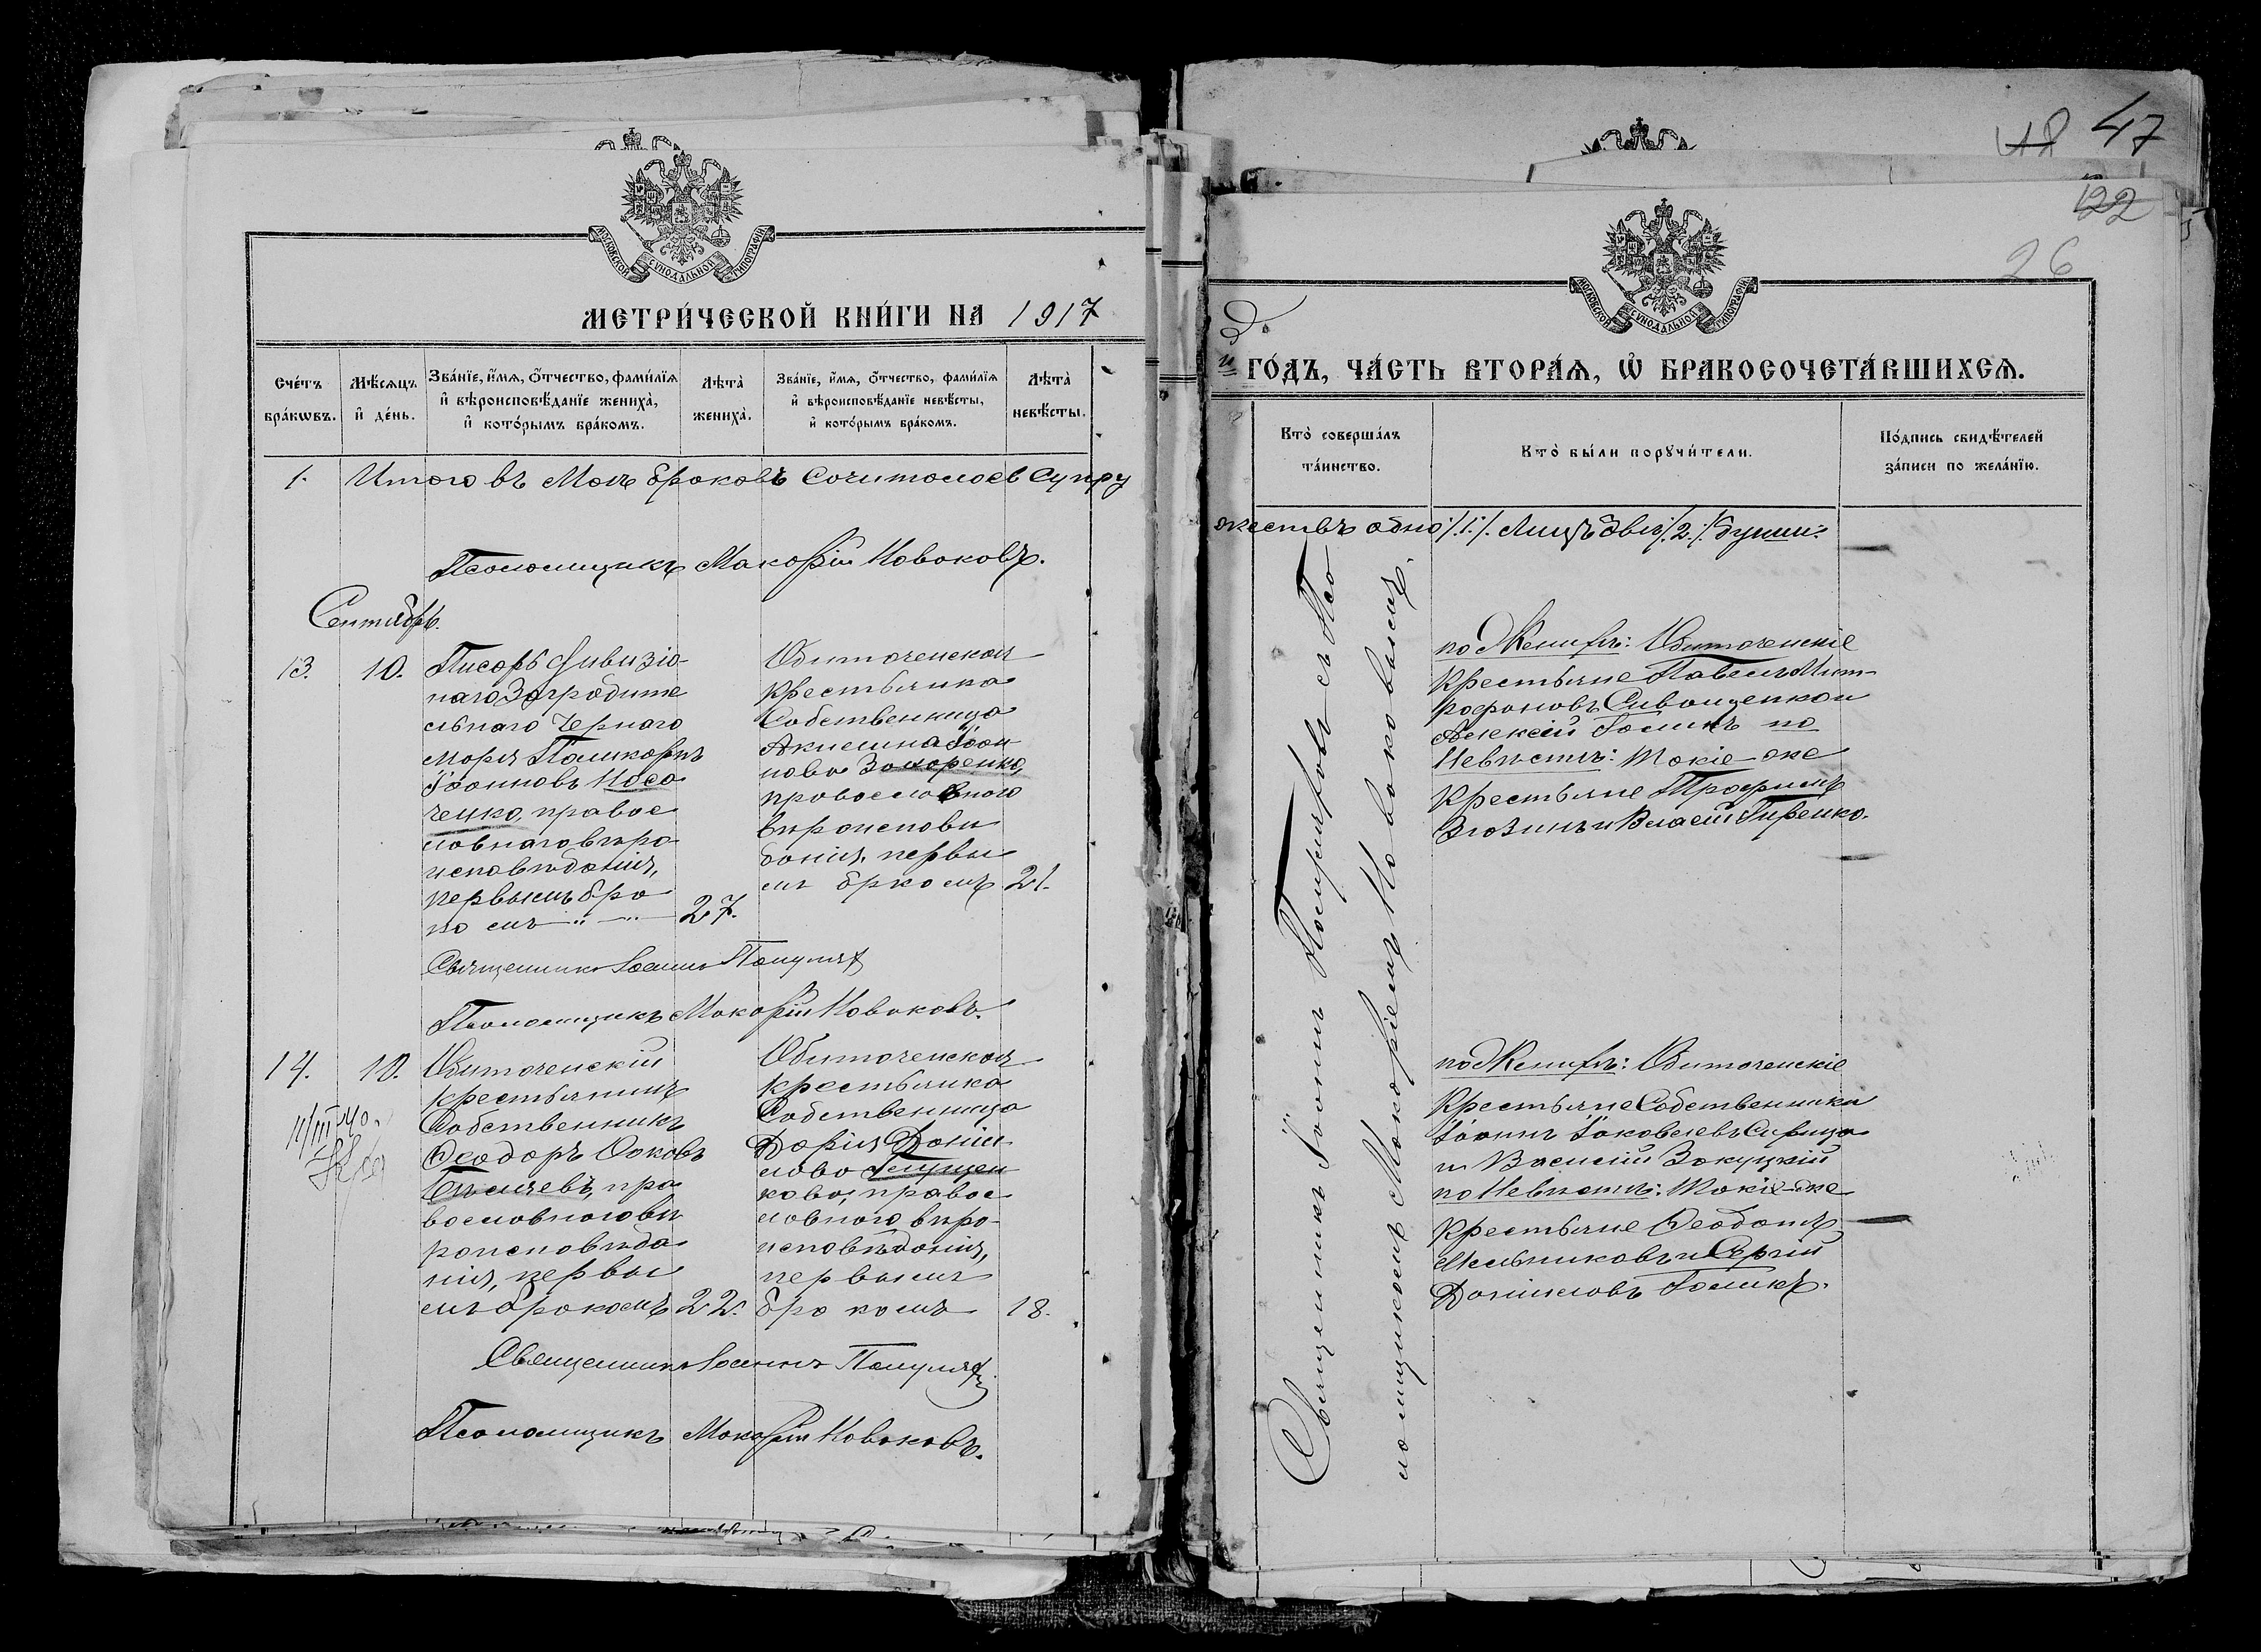 47
122
26
МОСКОВСКОЙ СѴНОДАЛЬНОЙ ТИПОГРАФІИ
МЕТРИ́ЧЕСКОЙ КНИ́ГИ НА 1917
Сче́тъ бра́кѡвъ.
Мѣ́сѧцъ и҆ де́нь.
Зва́нїе, и҆́мѧ, ѻ҆́тчество, фами́лїѧ
и҆ вѣроисповѣ́данїе жениха̀,
и҆ кото́рымъ бра́комъ.
Лѣта̀ жениха̀.
Зва́нїе, и҆́мѧ, ѻ҆́тчество, фами́лїѧ
и҆ вѣроисповѣ́данїе невѣ́сты,
и҆ кото́рымъ бра́комъ.
Лѣта̀ невѣ́сты.
1. Итого въ Маѣ браковъ Сочиталось Супру
Псаломщикъ Макарій Новаковъ.
Сентябрь.
13.
10.
Писарь Дивизіо-
наго Заградите
льнаго Чернаго
моря Поликарпъ
Іоанновъ Носа
ченко, правос
лавнаго вѣро
исповѣданія,
первымъ бра
комъ
27.
Обиточенская
крестьянка
Собственница
Акилина Іоан-
нова Захаренко,
православнаго
вѣроисповѣ
данія, первы
мъ бркомъ
21.
Священникъ Іоаннъ
Псаломщикъ Макарій Новаковъ.
14.
10.
11/III 40.
Обиточенскій
крестьянинъ
Собственникъ
Ѳеодоръ
пра
вославнаго вѣ
роисповѣда
нія, первы
мъ бракомъ
22.
Обиточенская
крестьянка
Собственница
Дарія Даніи
лова
кова, правос
лавнаго вѣро-
исповѣданія,
первымъ
бракомъ
18.
Священникъ Іоаннъ
Псаломщикъ Макарій Новаковъ.
МОСКОВСКОЙ СѴНОДАЛЬНОЙ ТИПОГРАФІИ
ГО́ДЪ, ЧА́СТЬ ВТОРА́Ѧ, Ѡ҆ БРАКОСОЧЕТА́ВШИХСѦ.
Кто̀ соверша́лъ
та́инство.
Кто̀ бы́ли порꙋчи́тели.
По́дпись свидѣ́телей
за́писи по жела́нїю.
жествъ одно /.1./. Лицъ двѣ /.2./.
Священникъ Іоаннъ съ Пса
ломщикомъ Макаріемъ Новаковымъ.
по Женихѣ: Обиточенскіе
крестьяне Павелъ Мит-
рофановъ Сиващенко и
Алексій Голикъ по
Невѣстѣ: Такіе-же
крестьяне Трофимъ
и Власій Гиренко.
по Женихѣ: Обиточенскіе
Крестьяне Собственники
Іоаннъ Іаковлевъ Сирица
и Василій Закуцкій
по Невѣстѣ: Такіе-же
крестьяне Ѳеодотъ
Мельниковъ и Сергій
Даніиловъ Голикъ.